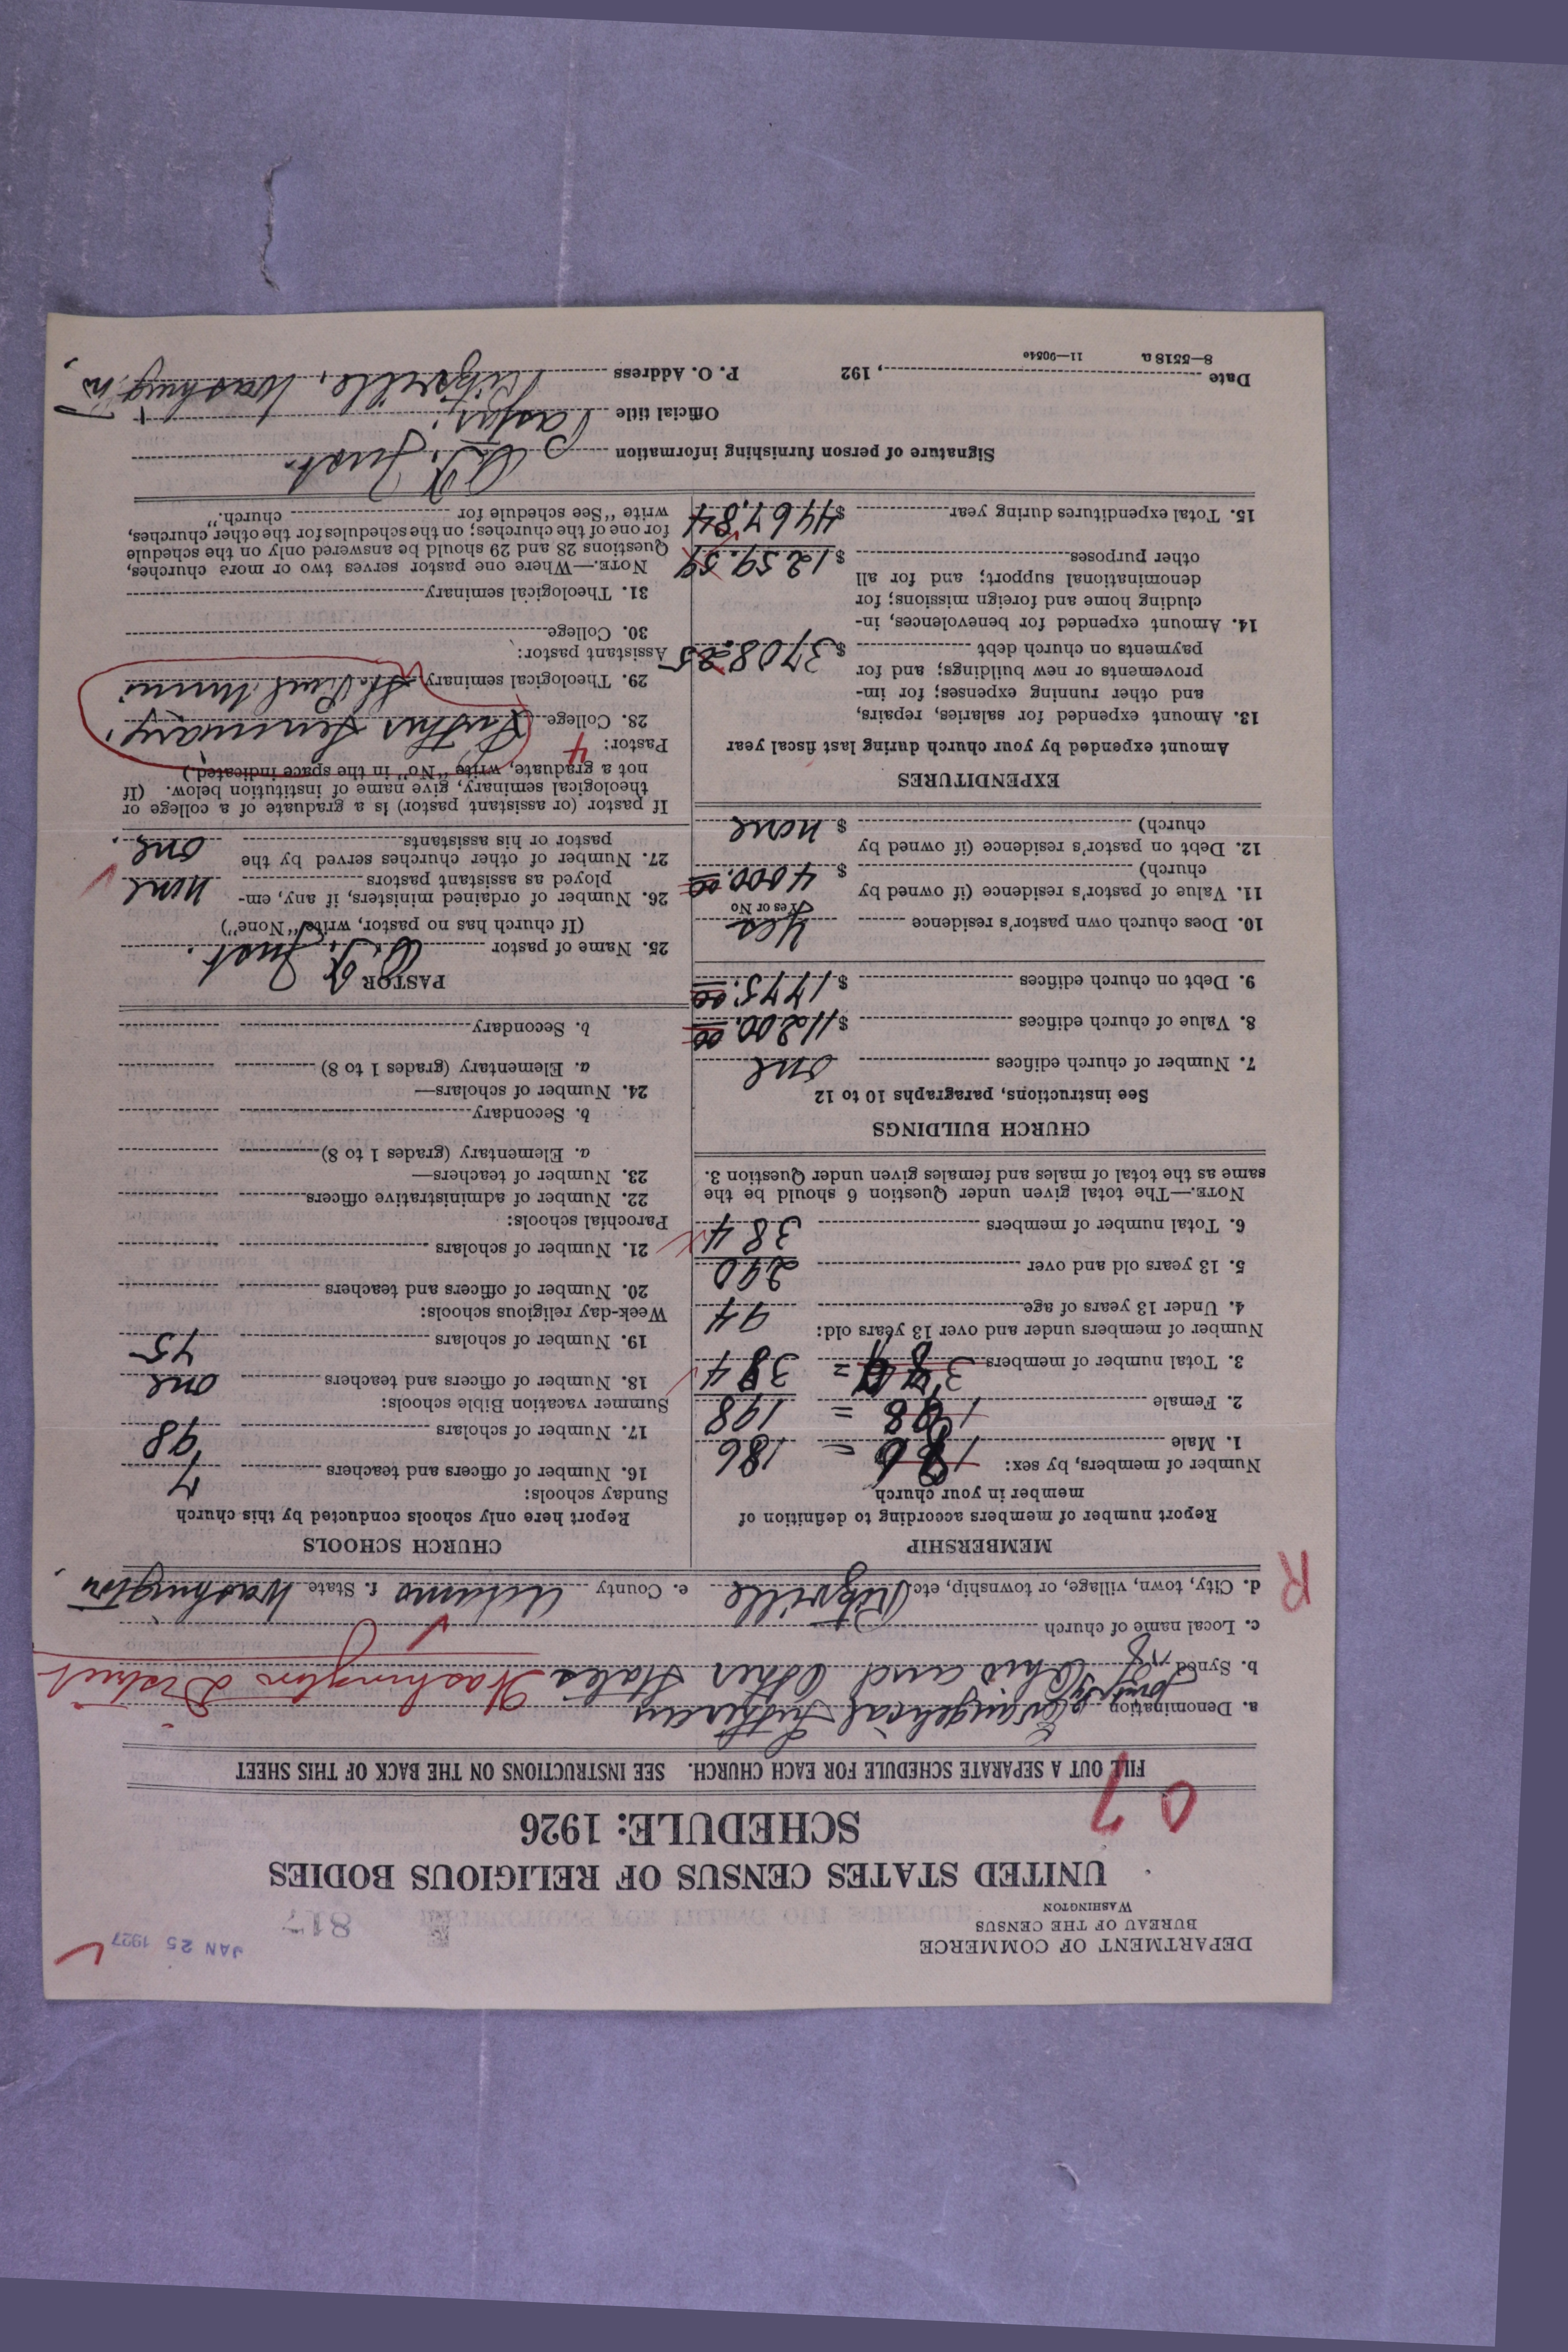 JAN 25 1927
817
DEPARTMENT OF COMMERCE
BUREAU OF THE CENSUS
WASHINGTON
UNITED STATES CENSUS OF RELIGIOUS BODIES
SCHEDULE: 1926
07
FILL OUT A SEPARATE SCHEDULE FOR EACH CHURCH. SEE INSTRUCTIONS ON THE BACK OF THIS SHEET
a. Denomination Evangelical Lutheran
b. Synod of Ohio and Other States Washington District
c. Local name of church
d. City, town, village, or township, etc. Ritzville e. County Adams f. State Washington.
R
MEMBERSHIP
Report number of members according to definition of
member in your church
Number of members, by sex:
1. Male 186 = 186
2. Female 198 = 198
3. Total number of members = 384
Number of members under and over 13 years old:
4. Under 13 years of age 94
5. 13 years old and over 290
6. Total number of members 384
NOTE.—The total given under Question 6 should be the
same as the total of males and females given under Question 3.
CHURCH BUILDINGS
See instructions, paragraphs 10 to 12
7. Number of church edifices one
8. Value of church edifices $11200.00
9. Debt on church edifices $1775.00
10. Does church own pastor's residence Yes
Yes or No
11. Value of pastor's residence (if owned by
church) $4000.00
12. Debt on pastor's residence (if owned by
church) $none
EXPENDITURES
Amount expended by your church during last fiscal year
13. Amount expended for salaries, repairs,
and other running expenses; for im-
provements or new buildings; and for
payments on church debt $3708.25
14. Amount expended for benevolences, in-
cluding home and foreign missions; for
denominational support; and for all
other purposes $1259.59
15. Total expenditures during year $4467.84
CHURCH SCHOOLS
Report here only schools conducted by this church
Sunday schools:
16. Number of officers and teachers 7
17. Number of scholars 98
Summer vacation Bible schools:
18. Number of officers and teachers one
19. Number of scholars 75
Week-day religious schools:
20. Number of officers and teachers
21. Number of scholars
Parochial schools:
22. Number of administrative officers
23. Number of teachers—
a. Elementary (grades 1 to 8)
b. Secondary
24. Number of scholars—
a. Elementary (grades 1 to 8)
b. Secondary
PASTOR
25. Name of pastor Just.
(If church has no pastor, write "None")
26. Number of ordained ministers, if any, em-
ployed as assistant pastors none
27. Number of other churches served by the
pastor or his assistants one.
If pastor (or assistant pastor) is a graduate of a college or
theological seminary, give name of institution below. (If
not a graduate, write "No" in the space indicated.)
Pastor: 4
28. College Luther Seminary,
29. Theological seminary St Paul Minn
Assistant pastor:
30. College
31. Theological seminary
NOTE.—Where one pastor serves two or more churches,
Questions 28 and 29 should be answered only on the schedule
for one of the churches; on the schedules for the other churches,
write "See schedule for church."
Signature of person furnishing information Just.
Official title Pastor,
Date , 192 P. O. Address Ritzville, Washington
8—5518 a 11—9054